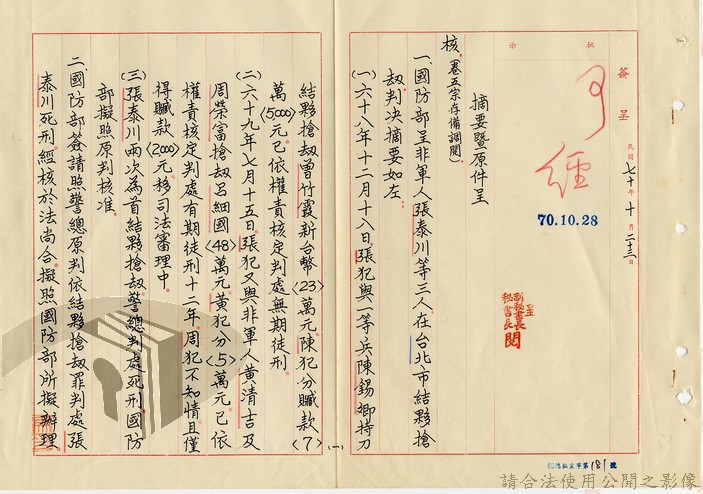 批
示
可
經
70.10.28
簽呈
民國七十年十月二十三日
呈
副秘書長
秘書長
閱
摘要暨原件呈
核。(卷五宗存備調閱)
一、國防部呈非軍人張泰川等三人在台北市結夥搶
劫判決摘要如左:
(一)六十八年十二月十八日,張犯與一等兵陳錫卿持刀
結夥搶劫曾竹霞新台幣<23>萬元,陳犯分贓款<7>
萬<5000>元已依權責核定判處無期徒刑。
(二)六十九年七月十五日,張犯又與非軍人黃清吉及
周榮富搶劫呂細國<48>萬元,黃犯分<5>萬元已依
權責核定判處有期徒刑十二年,周犯不知情且僅
得贓款<2000>元移司法審理中。
(三)張泰川兩次為首結夥搶劫,警總判處死刑,國防
部擬照原判核准。
二、國防部簽請照警總原判依結夥搶劫罪判處張
泰川死刑,經核於法尚合,擬照國防部所擬辦理
(一)
第181號
請合法使用公開之影像